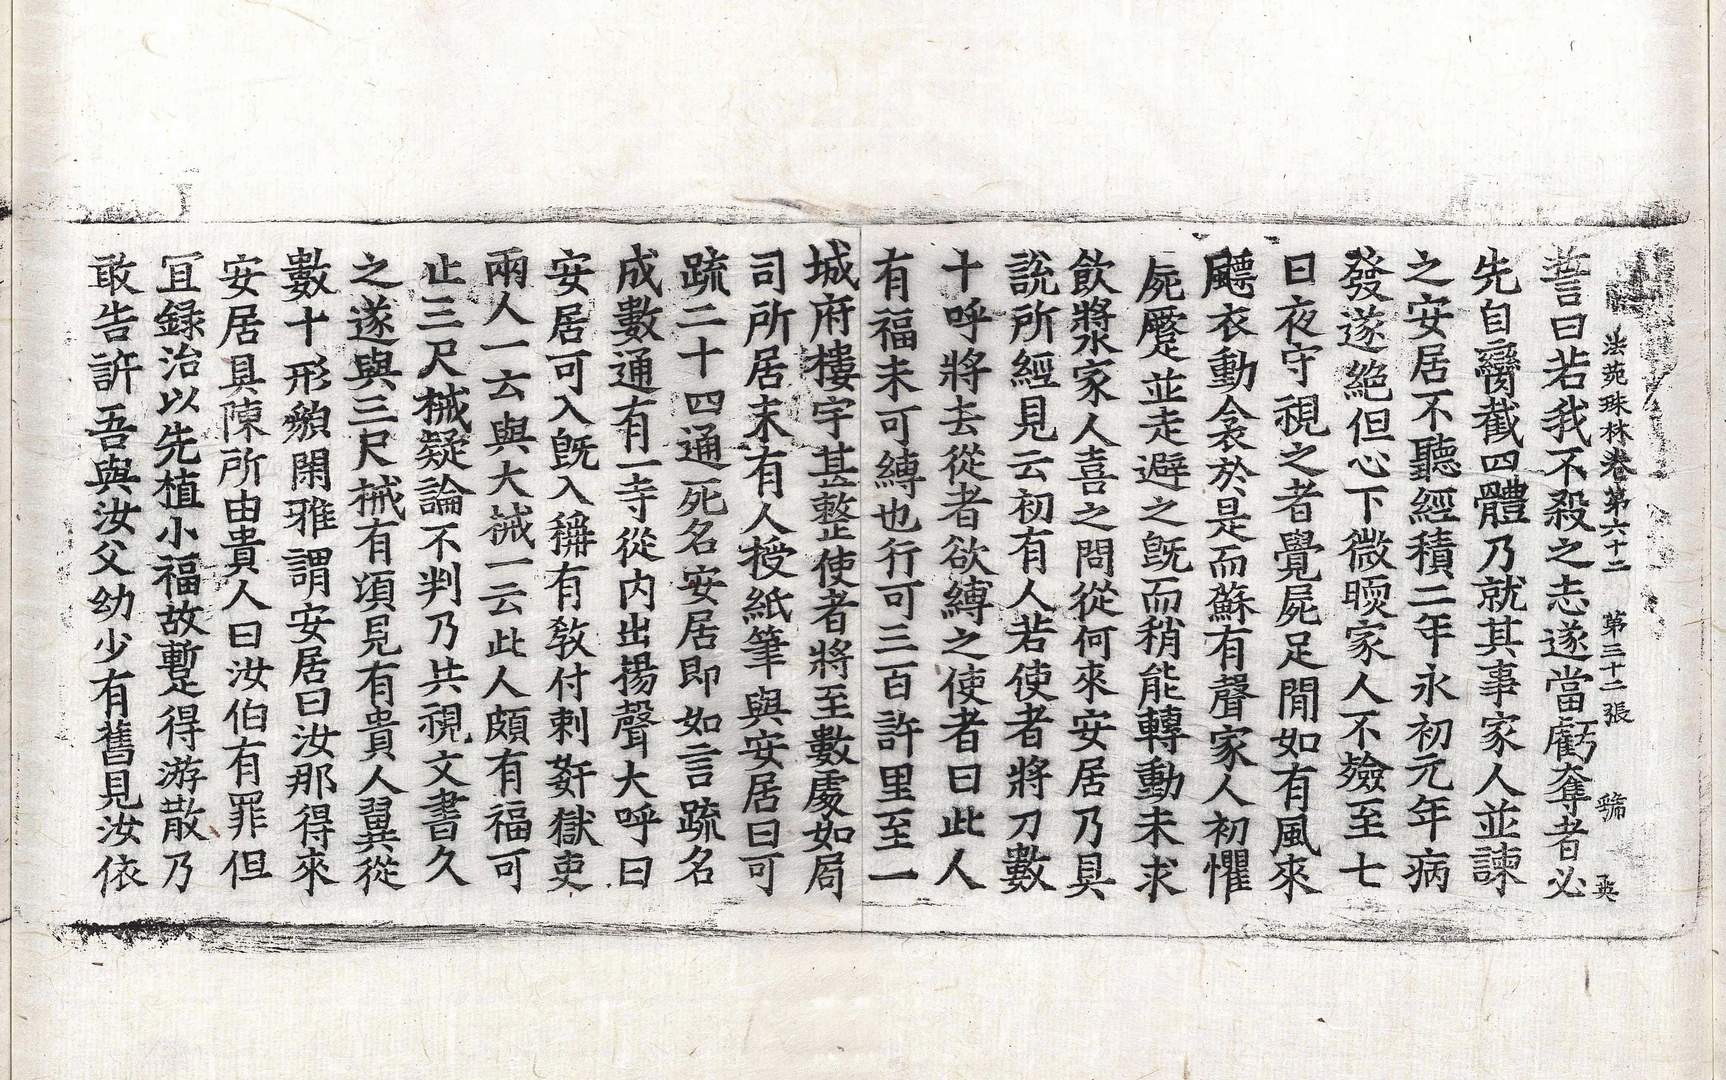 法苑珠林卷第六十二 第三十二張 號 英
誓曰若我不殺之志遂當虧奪者必
先自臠截四體乃就其事家人並諫
之安居不聽經積二年永初元年病
發遂絕但心下微煗家人不殮至七
日夜守視之者覺屍足閒如有風來
飄衣動衾於是而蘇有聲家人初懼
屍蹷並走避之旣而稍能轉動未求
飲將家人喜之問從何來安居乃具
說所經見云初有人若使者將刀數
十呼將去從者欲縛之使者曰此人
有福未可縛也行可三百許里至一
城府樓宇甚整使者將至數處如局
司所居末有人授紙筆與安居曰可
疏二十四通死名安居即如言疏名
成數通有一寺從內出揚聲大呼曰
安居可入旣入稱有敎付刾姧獄吏
兩人一云與大械一云此人頗有福可
止三尺械疑論不判乃共視文書久
之遂與三尺械有頃見有貴人翼從
數十形貌閑雅謂安居曰汝那得來
安居具陳所由貴人曰汝伯有罪但
冝録治以先植小福故暫得游散乃
敢告訴吾與汝父幼少有舊見汝依